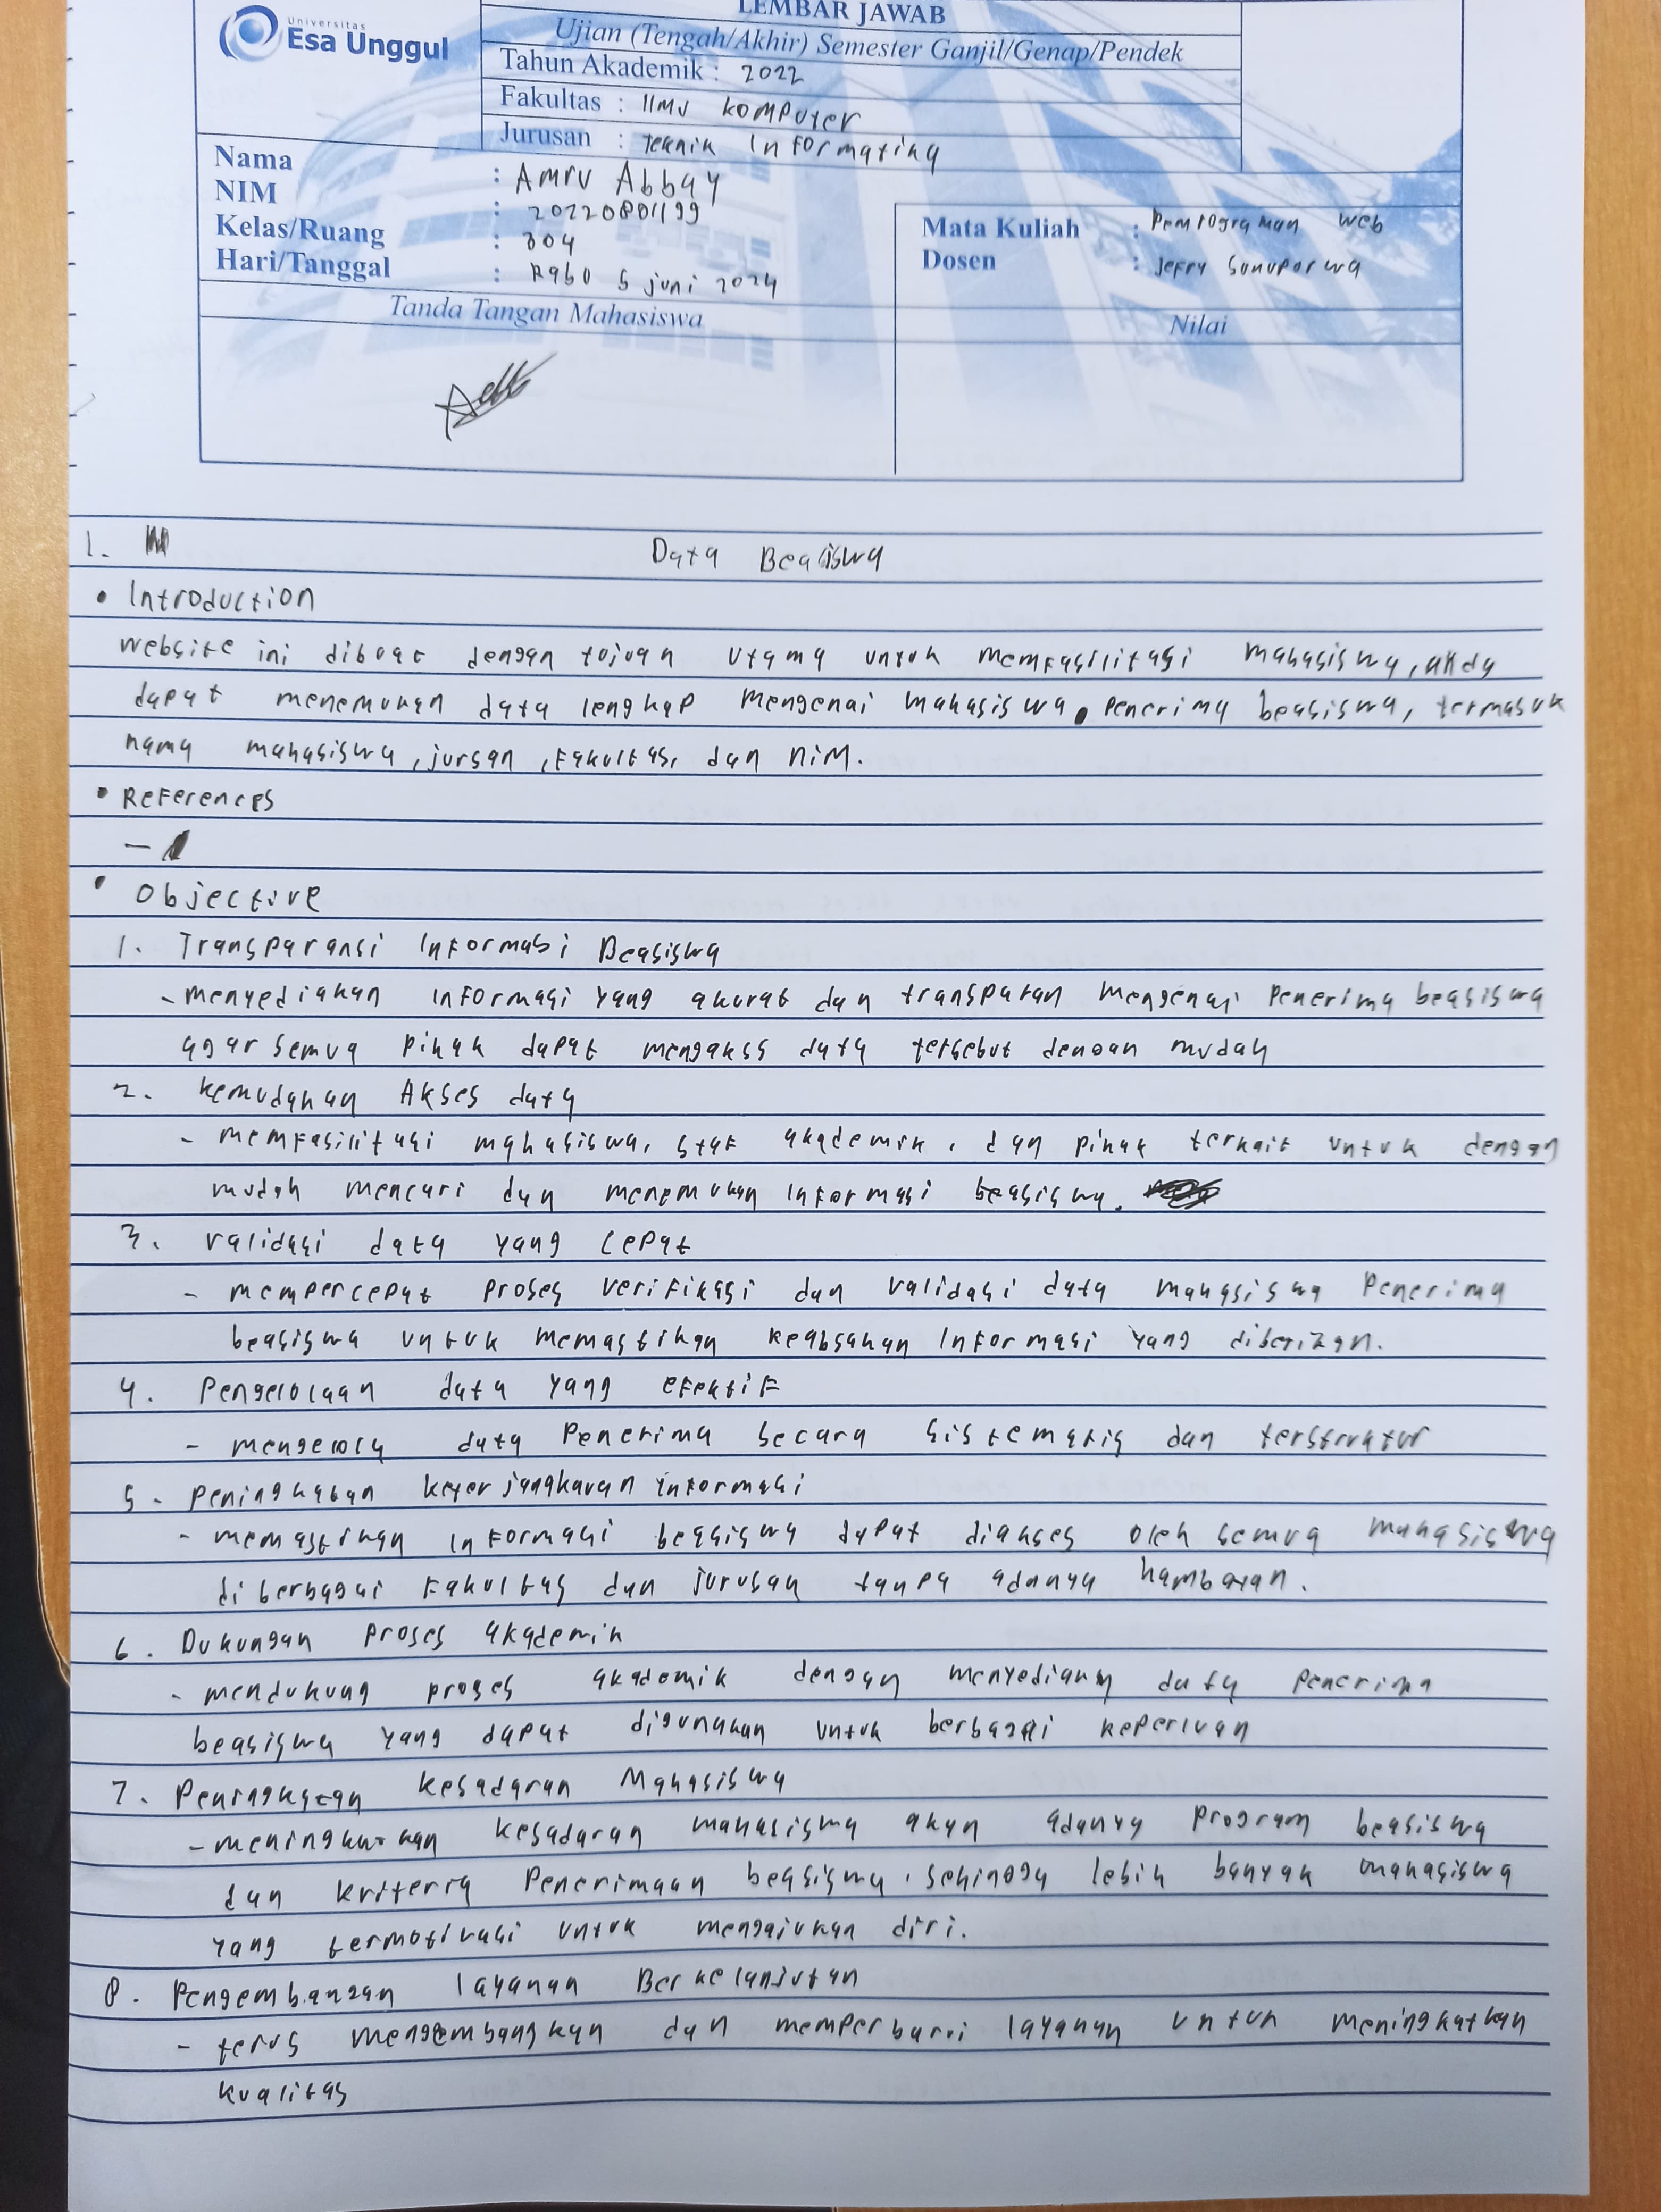 LEMBAR JAWAB
Universitas
Esa Unggul
Ujian (Tengah/Akhir) Semester Ganjil/Genap/Pendek
Tahun Akademik : 2022
Fakultas : Ilmu komputer
Jurusan : Teknik Informatika
Nama : Amru Abbay
NIM : 20220801199
Kelas/Ruang : 304
Hari/Tanggal : Rabu 5 juni 2024
Mata Kuliah : Pemrograman web
Dosen : Jefry Sunupurwa
Tanda Tangan Mahasiswa
Nilai
1. Data Beasiswa
• Introduction
website ini dibuat dengan tujuan utama untuk memfasilitasi mahasiswa, anda
dapat menemukan data lengkap mengenai mahasiswa penerima beasiswa, termasuk
nama mahasiswa, jursan, fakultas, dan NIM.
• References
-
• Objective
1. Transparansi Informasi Beasiswa
- menyediakan informasi yang akurat dan transparan mengenai penerima beasiswa
agar semua pihak dapat mengakss data tersebut dengan mudah
2. kemudahan Akses data
- memfasilitasi mahasiswa, staf akademik, dan pihak terkait untuk dengan
mudah mencari dan menemukan informasi beasiswa.
3. validasi data yang cepat
- mempercepat proses verifikasi dan validasi data mahasiswa penerima
beasiswa untuk memastikan keabsahan informasi yang diberikan.
4. Pengelolaan data yang efektif
- mengelola data penerima secara sistematis dan terstruktur
5. Peningkatan keterjangkauan informasi
- memastikan informasi beasiswa dapat diakses oleh semua mahasiswa
di berbagai fakultas dan jurusan tanpa adanya hambatan.
6. Dukungan proses akademik
- mendukung proses akademik dengan menyediakan data penerima
beasiswa yang dapat digunakan untuk berbagai keperluan
7. Peningkatan kesadaran Mahasiswa
- meningkatkan kesadaran mahasiswa akan adanya program beasiswa
dan kriteria penerimaan beasiswa, sehingga lebih banyak mahasiswa
yang termotivasi untuk mengajukan diri.
8. Pengembangan layanan Berkelanjutan
- terus mengembangkan dan memperbarui layanan untuk meningkatkan
kualitas